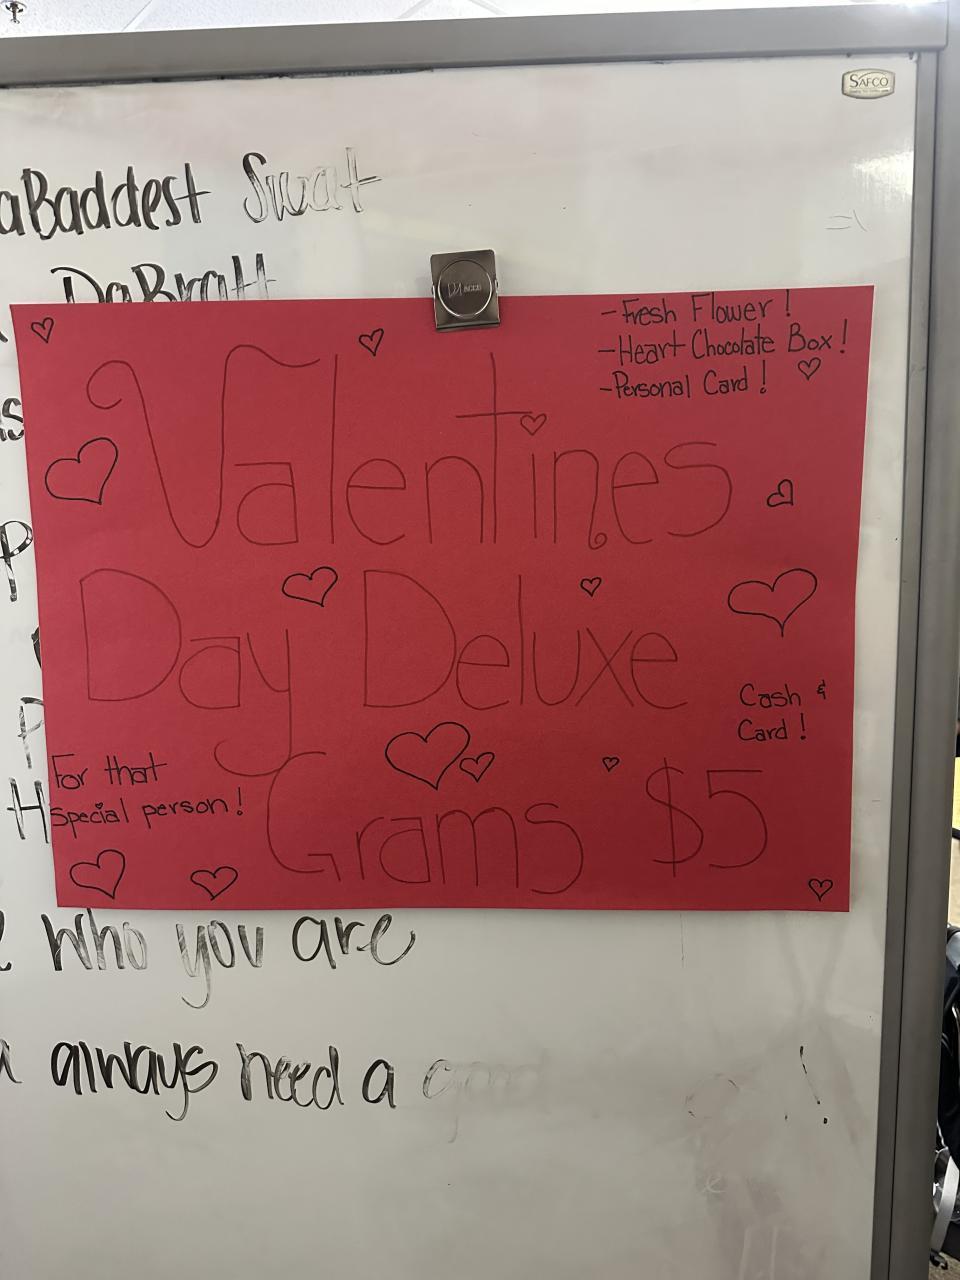 SAFCO
aBaddest Swat
DaBratt
- Fresh Flower !
- Heart Chocolate Box !
- Personal Card !
Valentines
Day Deluxe
Grams $5
Cash &
Card !
For that
special person !
who you are
always need a